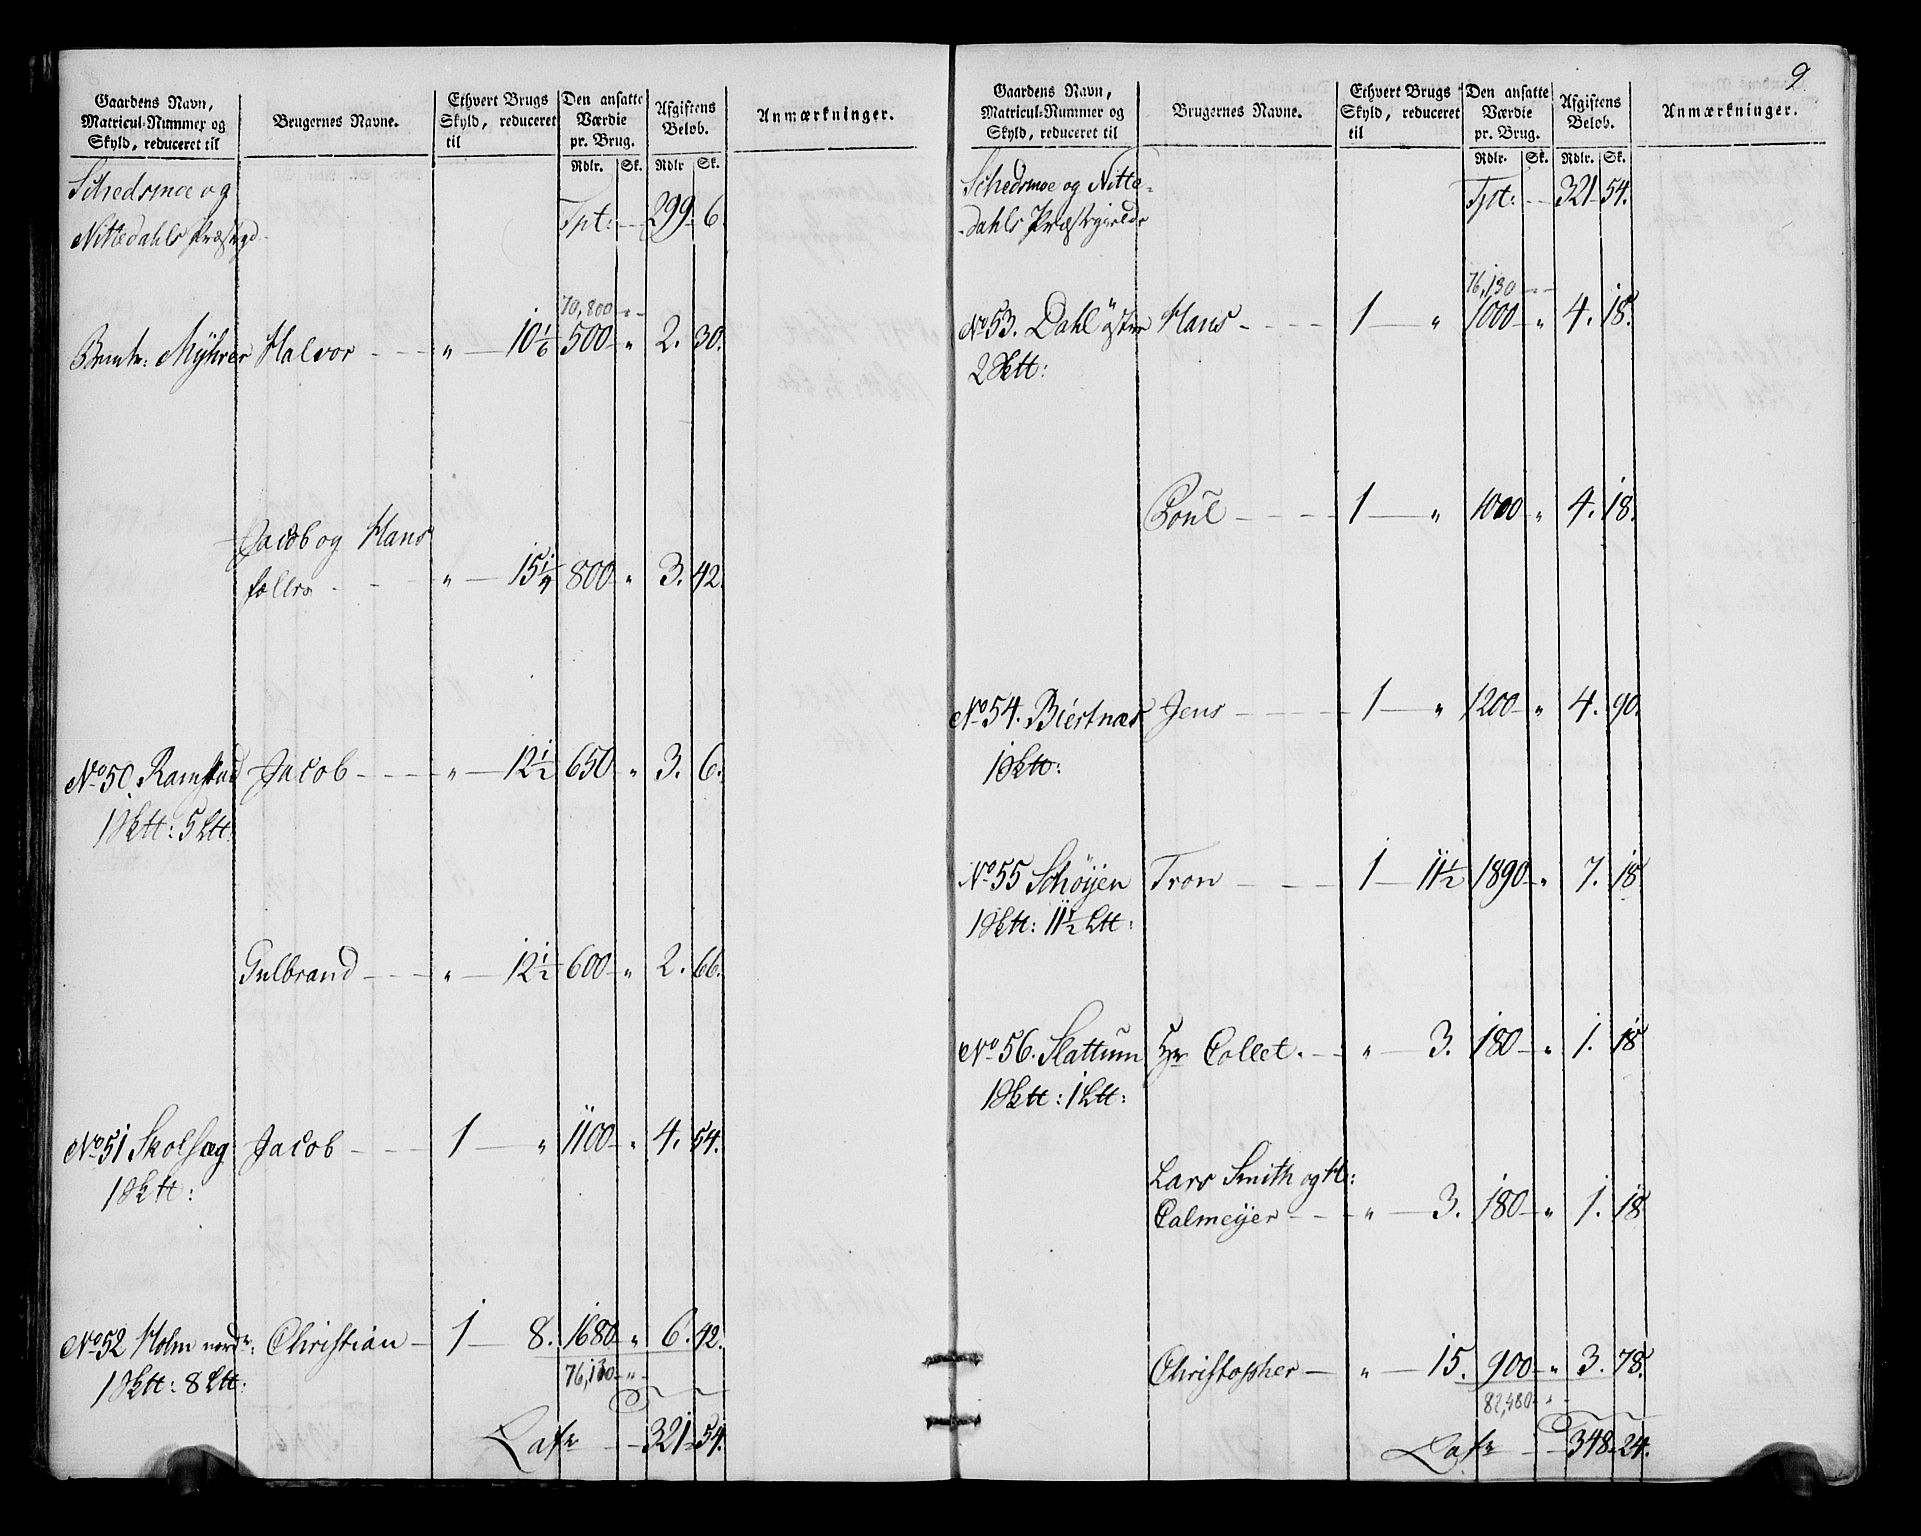 Gaardens Navn, Matricul-Nummer og Skyld, reduceret til | Brugernes Navne. | Ethvert Brugs Skyld, reduceret til | Den ansatte Værdie pr. Brug. Rdlr. Sk. | Afgiftens Beløb. Rdlr Sk. | Anmærkninger.
Schedsmoe og
Nittedahls Præstgd
Tpt: 299. 6.
70,800 "
Bemte: Myhrer Halvor " 10 1/6 500 " 2. 30.
Jacob og Hans
fælles " 15 1/4 800 " 3. 42.
No 50. Ramstad Jacob " 12 1/2 650 " 3. 6.
1 Sktt: 5 Ltt:
Gulbrand " 12 1/2 600 " 2. 66.
No 51 Skolsæg Jacob 1 " 1100 " 4. 54.
1 Sktt:
No 52 Holm nordr: Christian 1 8. 1680 " 6. 42.
1 Sktt: 8 Ltt: 76,130 "
Lats 321 54.
9
Gaardens Navn, Matricul-Nummer og Skyld, reduceret til | Brugernes Navne. | Ethvert Brugs Skyld, reduceret til | Den ansatte Værdie pr. Brug. Rdlr. Sk. | Afgiftens Beløb. Rdlr. Sk. | Anmærkninger.
Schedsmoe og Nitte-
dahls Præstegield
Tpt: 321 54.
76,130 "
No 53. Dahl öster Hans 1 " 1000 " 4. 18.
2 Sktt:
Poul 1 " 1000 " 4. 18.
No 54. Biertnæs Jens 1 " 1200 " 4. 90.
1 Sktt:
No 55 Schøyen Tron 1 11 1/2 1890 " 7. 18
1 Sktt: 11 1/2 Ltt:
No 56. Slattum Hr Collet. " 3. 180 " 1. 18
1 Sktt: 1 Ltt:
Lars Smith og H:
Calmeijer " 3. 180 " 1. 18
Christopher " 15. 900 " 3. 78.
82,480 "
Lats 348 24.